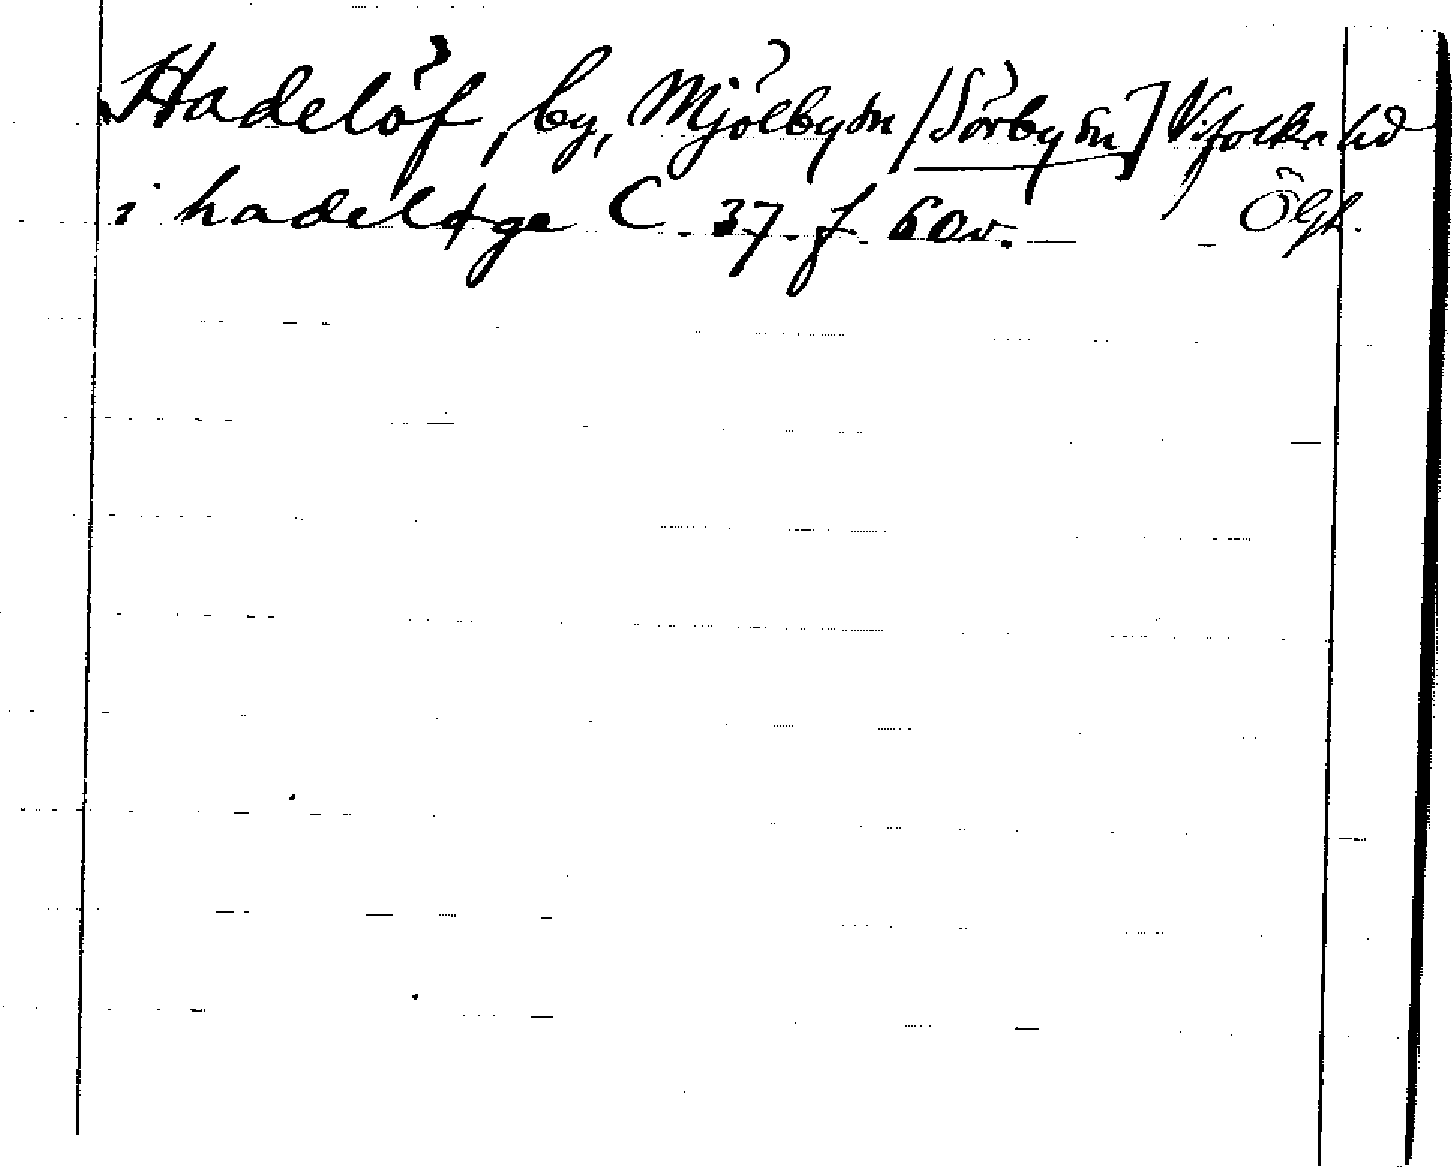 Hadelöf, by, Mjölby sn [Sörby sn] Vifolka hd
i hadeløge C 37 f 60v. Ögh.